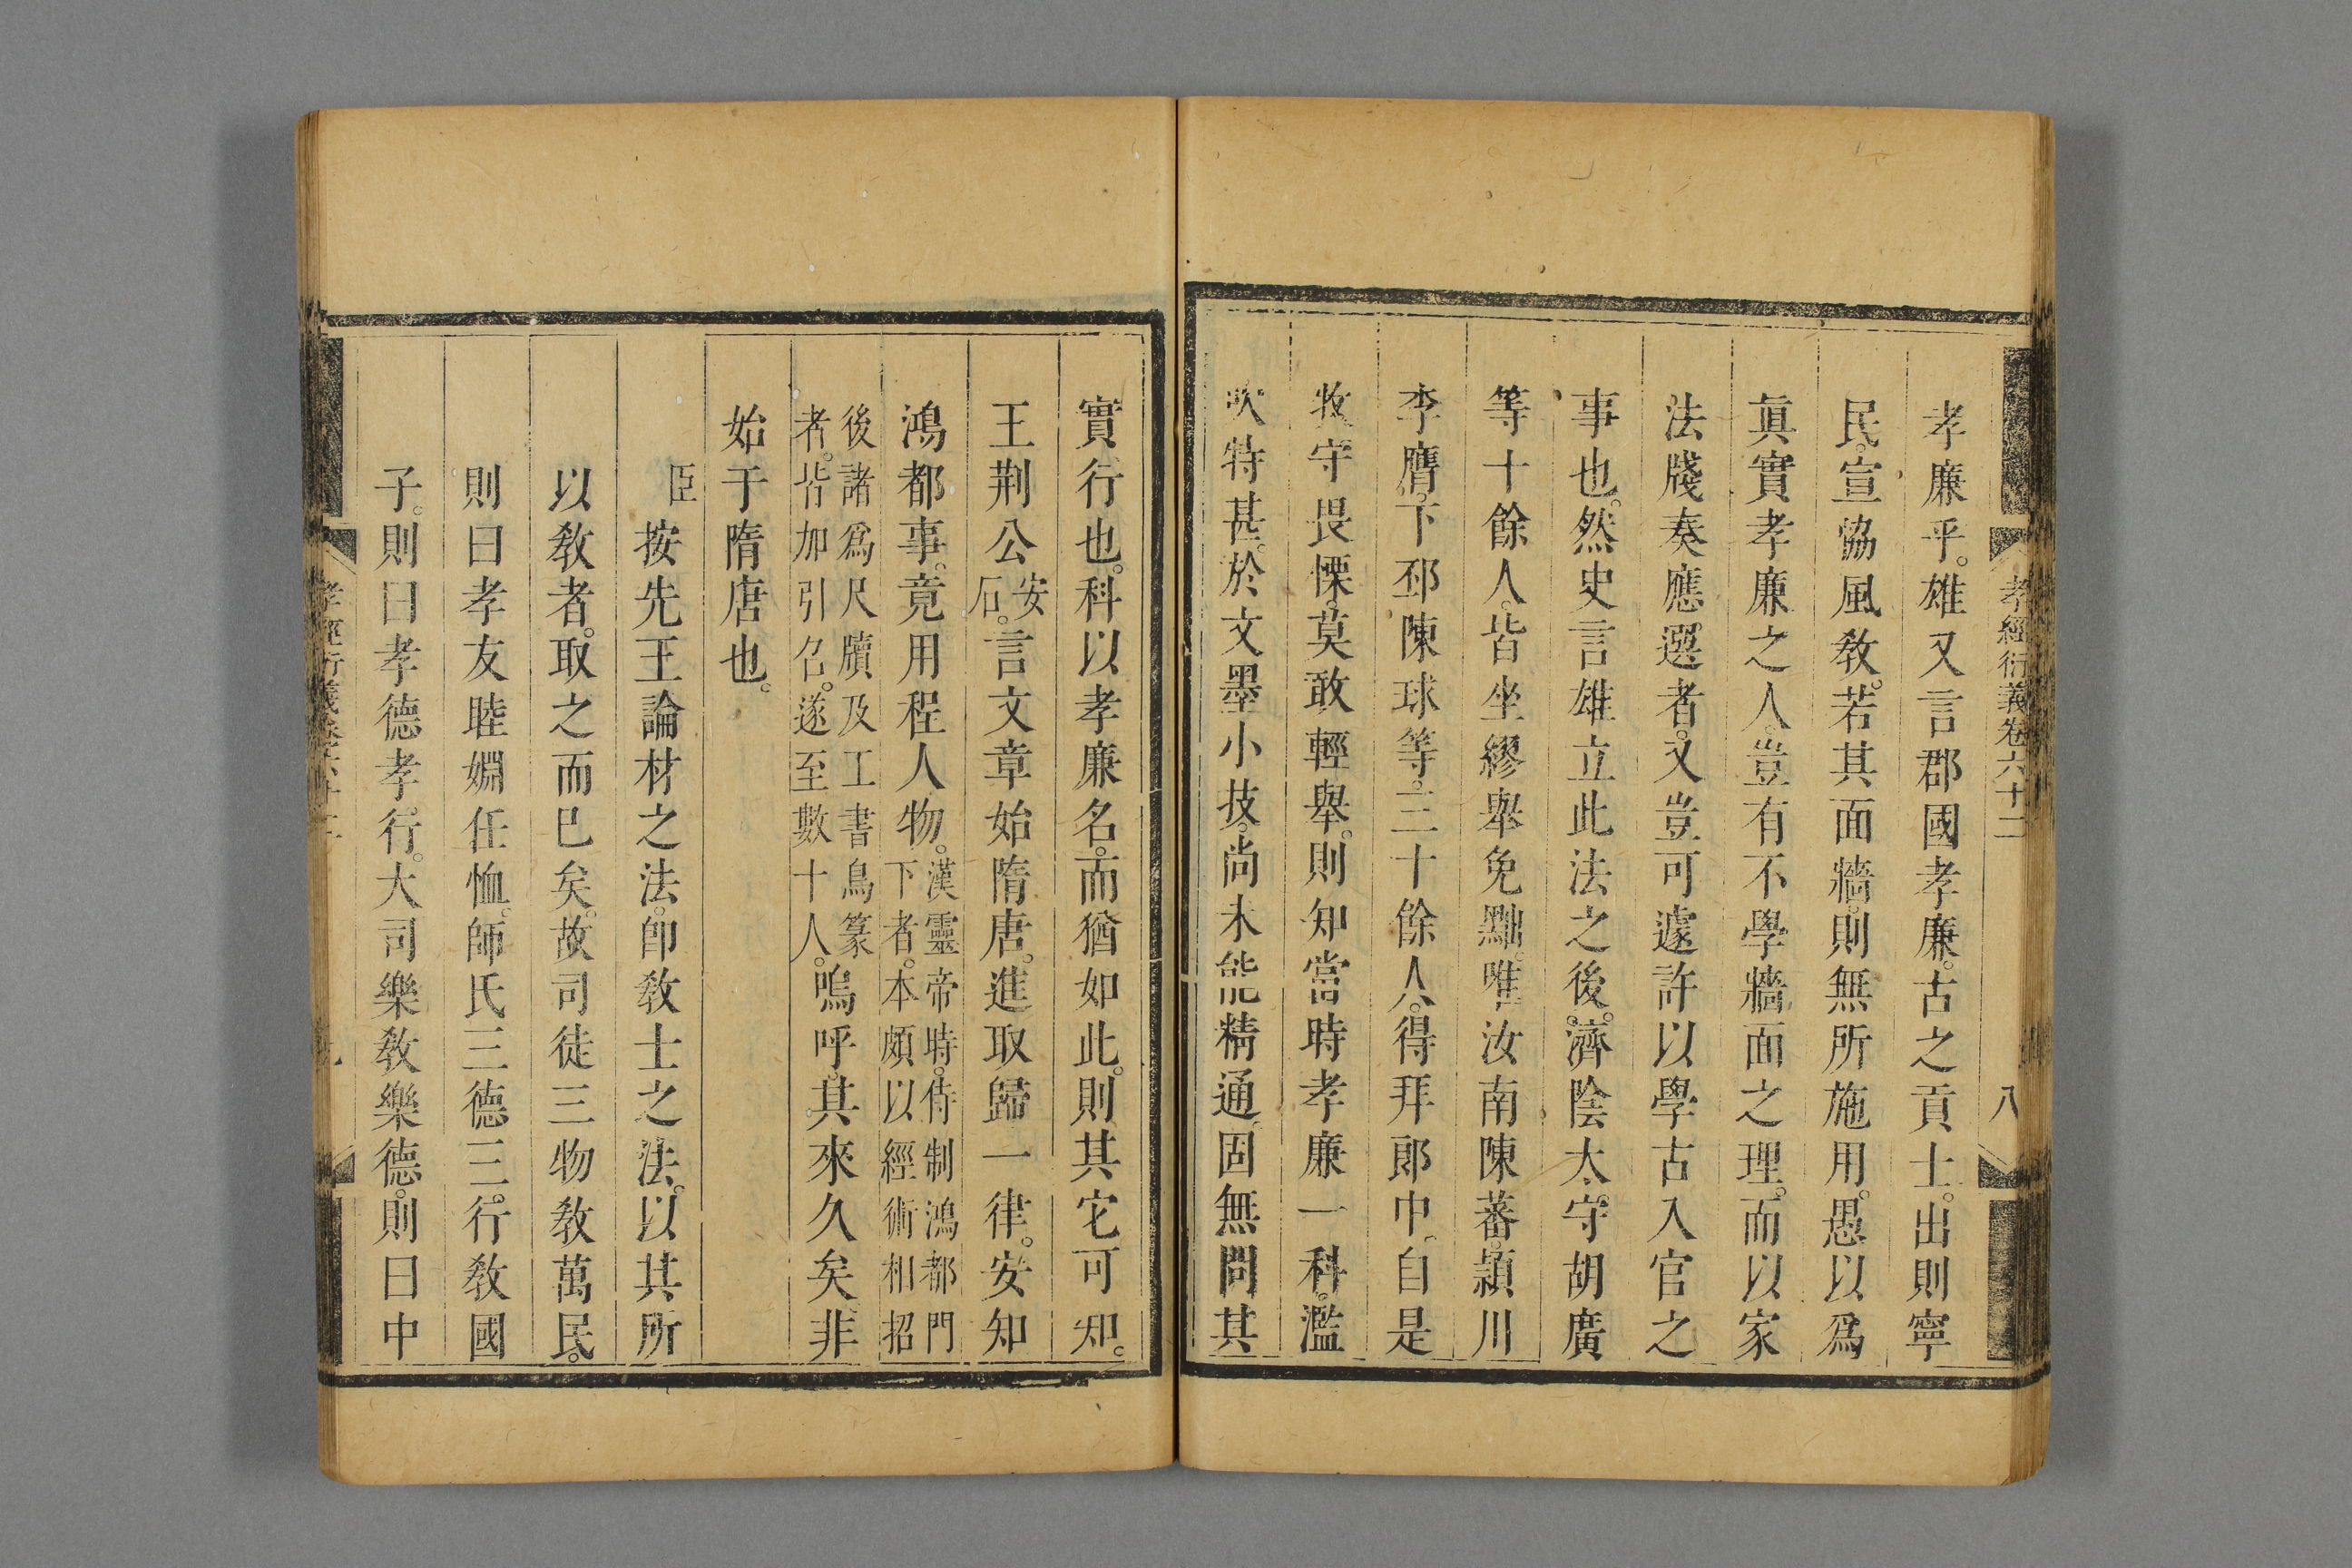 孝經衍義卷六十二 八
孝廉乎。雄又言郡國孝廉。古之貢士。出則寧
民。宣協風教。若其面牆。則無所施用。愚以爲
眞實孝廉之人。豈有不學牆面之理。而以家
法牋奏應選者。又豈可遽許以學古入官之
事也。然史言雄立此法之後。濟陰太守胡廣
等十餘人。皆坐繆舉免黜。唯汝南陳蕃。潁川
李膺。下邳陳球等。三十餘人。得拜郎中。自是
牧守畏慄。莫敢輕舉。則知當時孝廉一科。濫
吹特甚。於文墨小技。尚未能精通。固無問其
實行也。科以孝廉名。而猶如此。則其它可知。
王荆公安石。言文章始隋唐。進取歸一律。安知
鴻都事。竟用程人物。漢靈帝時。侍制鴻都門下者。本頗以經術相招
後諸爲尺牘及工書鳥篆者。皆加引名。遂至數十人。嗚呼。其來久矣。非
始于隋唐也。
臣按先王論材之法。卽教士之法。以其所
以敎者。取之而已矣。故司徒三物敎萬民。
則曰孝友睦婣任恤。師氏三德三行。敎國
子。則曰孝德孝行。大司樂敎樂德。則曰中
孝經衍義卷六十二 九